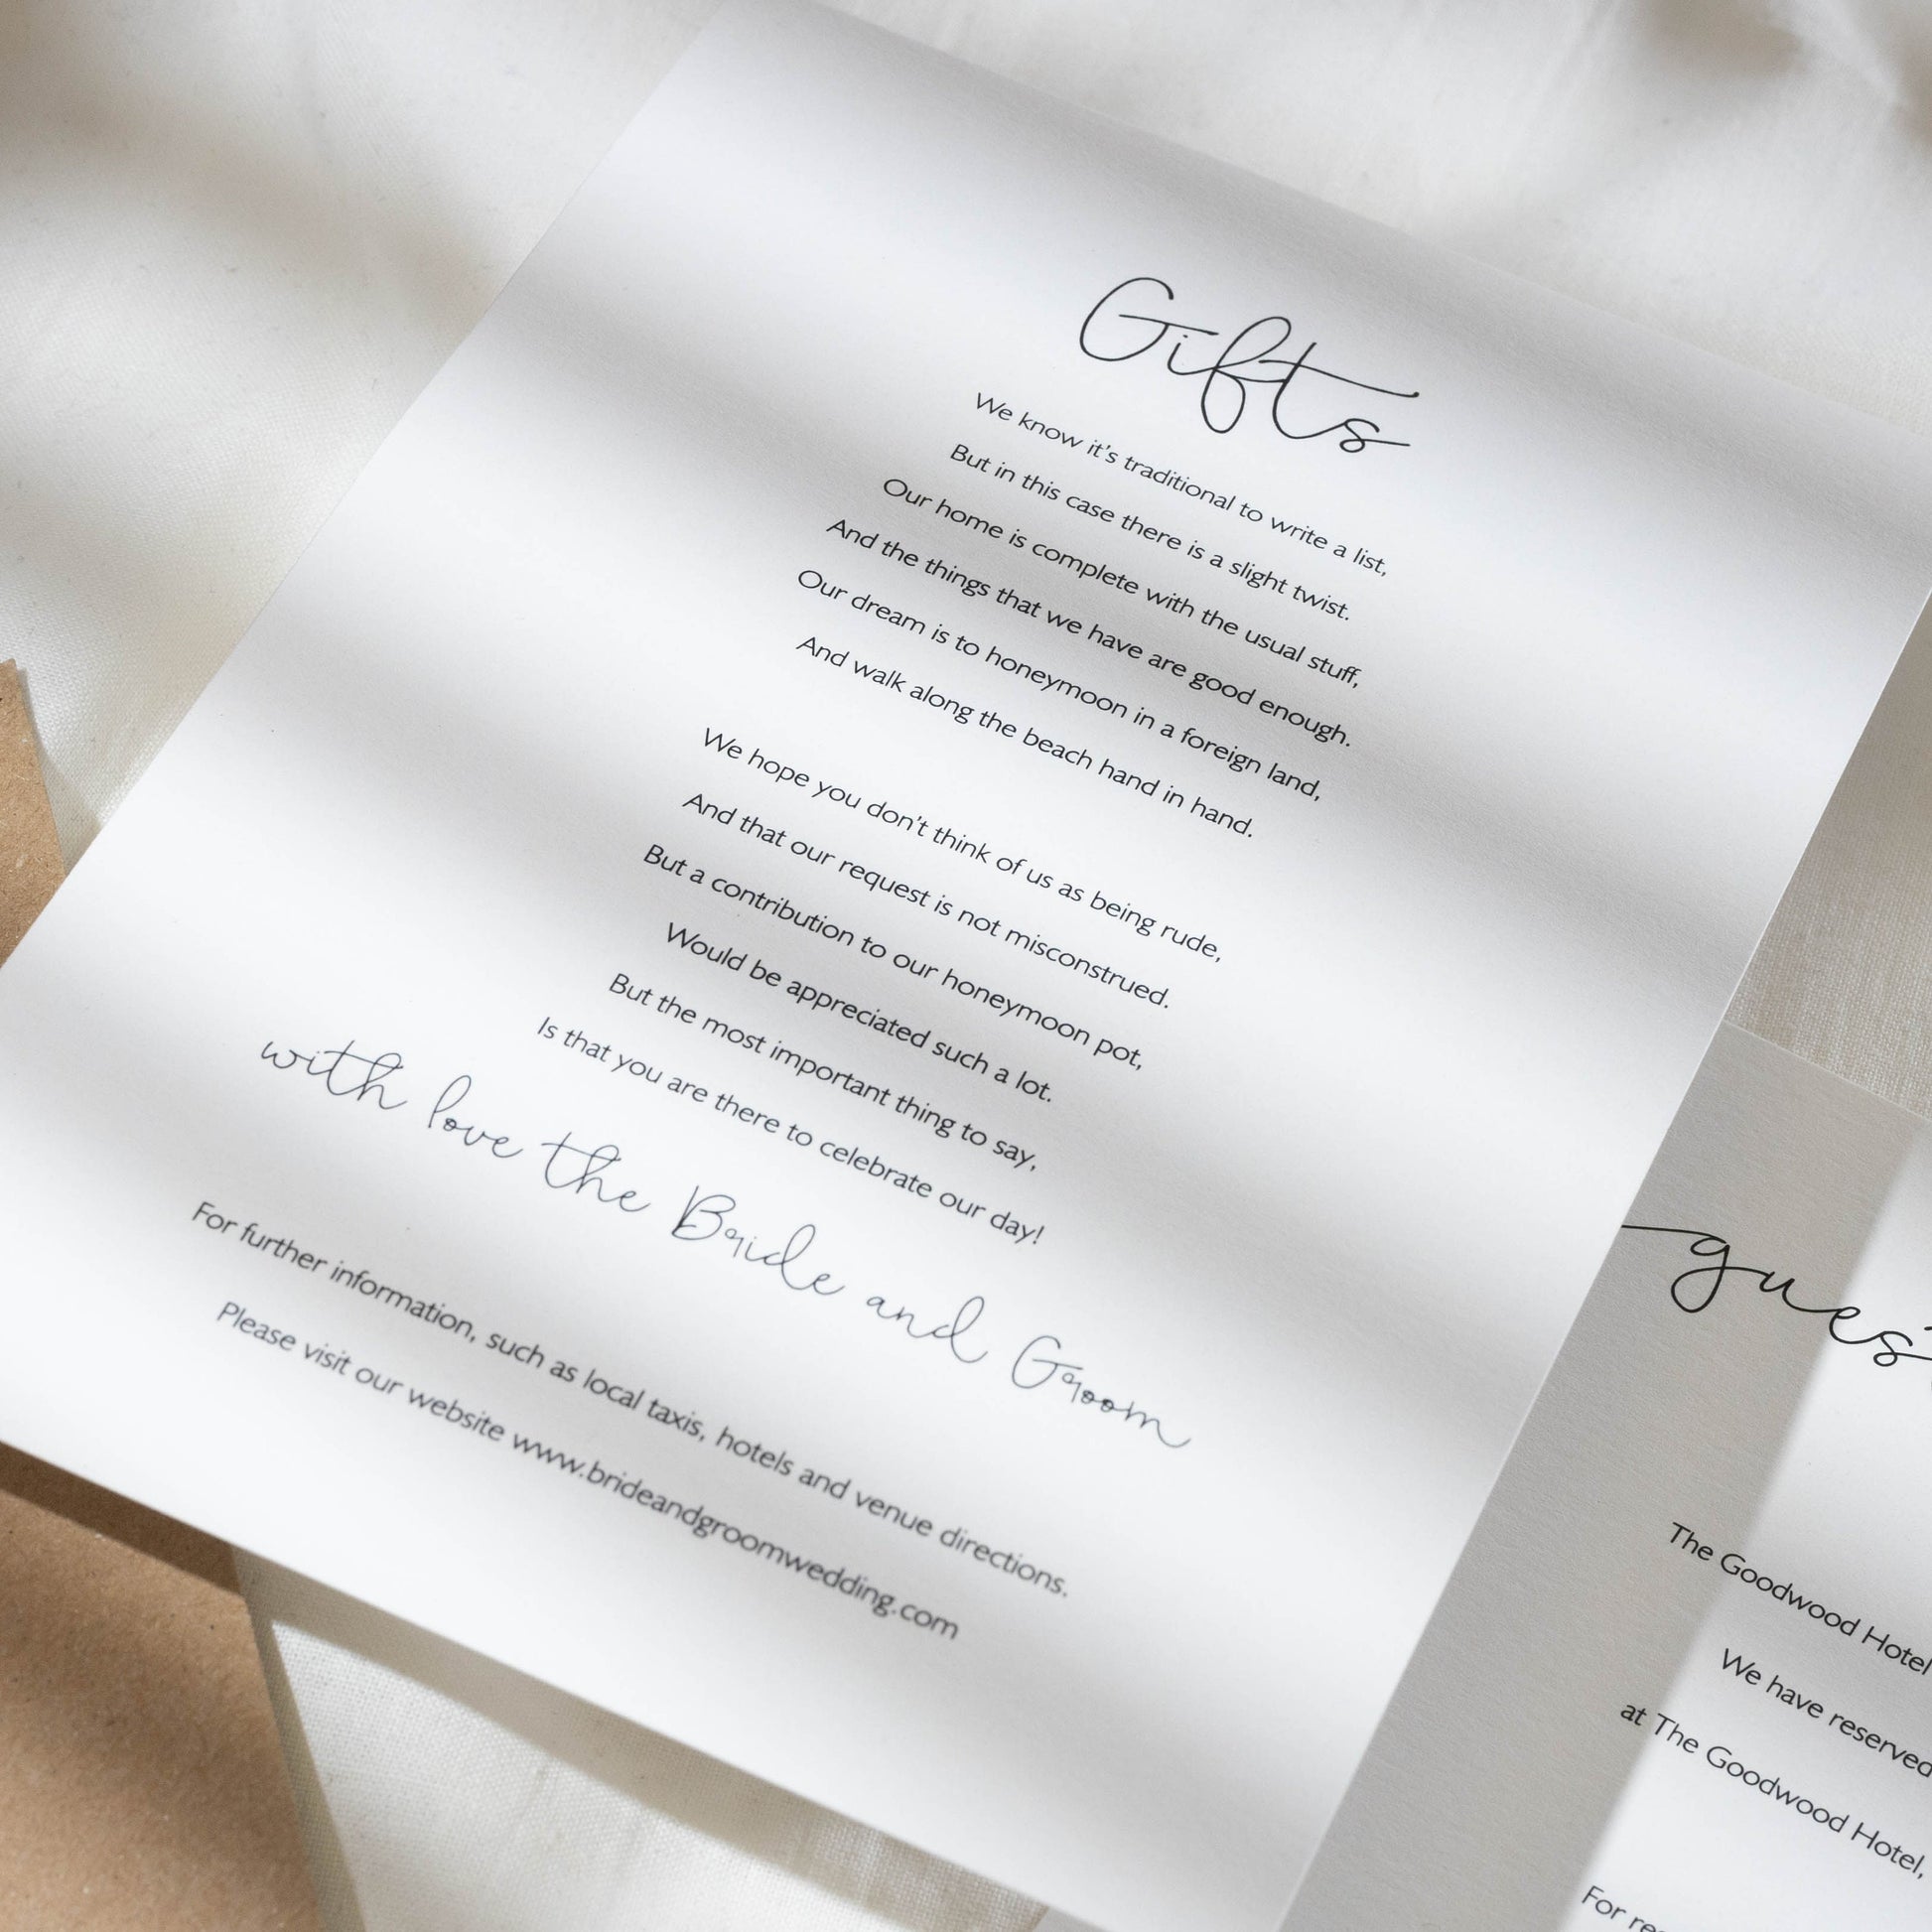 Gifts
We know it's traditional to write a list,
But in this case there is a slight twist.
Our home is complete with the usual stuff,
And the things that we have are good enough.
Our dream is to honeymoon in a foreign land,
And walk along the beach hand in hand.
We hope you don't think of us as being rude,
And that our request is not misconstrued.
But a contribution to our honeymoon pot,
Would be appreciated such a lot.
But the most important thing to say,
Is that you are there to celebrate our day!
with love the Bride and Groom
For further information, such as local taxis, hotels and venue directions.
Please visit our website www.brideandgroomwedding.com
gues
The Goodwood Hotel
We have reserved
at The Goodwood Hotel,
For re